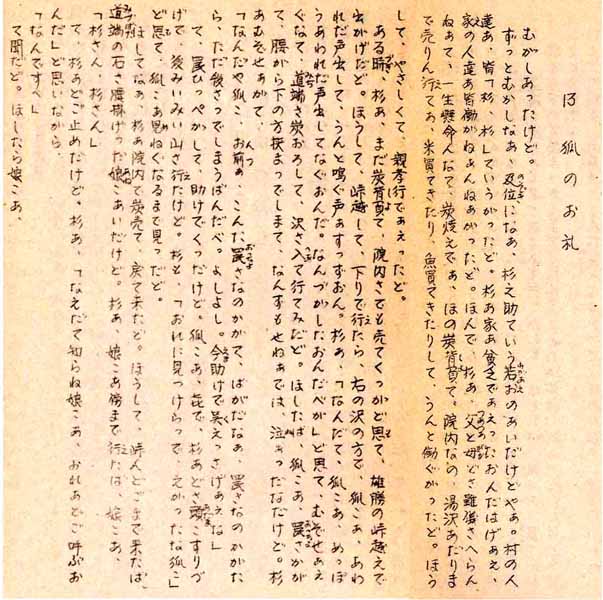 13 狐のお礼
むがしあったけど。
ずっとむかしなぁ、及位になぁ、杉之助ていう若おのあいだけどやぁ。村の人
達あ、皆「杉、杉」していうがったど。杉あ家あ貧乏であぇったおんだはげぁぇ、
家の人達あ皆働がねぁんねぁがったど。ほんで、杉あ、父と母どさ難儀さへらん
ねぁて、一生懸命んなて、炭焼えでぁ、ほの炭背負て。院内なの、湯沢あだりま
で売りん行てぁ、米買てきたり、魚買てきたりして、うんと働ぐがったど。ほう
して、やさしくて、親孝行であぇったど。
ある時、杉あ、まだ炭背負て、院内さでも売てくっかど思て、雄勝の峠越えで
出かげだど。ほうして、峠越して、下りで行たら、右の沢の方で、狐こあ、あわ
れだ声出して、うんと鳴ぐ声ぁすっずおん。杉あ、「なんだて、狐こあ、めっぽ
うあわれだ声出してなぐおんだ。なんづがしたおんだべが」ど思て、むぞせぁぇ
ぐなて、道端さ炭おろして、沢さ入て行てみだど。ほしたば、狐こあ、罠さかが
て、腰から下の方挟まってしまて、なんずもせねぁでは、泣ぎったなだけど。杉
あむぞせぁがて、
「なんだや狐こ、お前ぁ、こんだ罠さなのかがて、ばがだなぁ。罠さなのかがた
ら、ただ殺さってしまうばんだべ。よしよし。今助けで呉えっさげぁぇね」
て、罠ひっぺがして、助けでくっだけど。狐こあ、㐂で、杉あどさ頭こすりづ
げで、後みいみい山さ行だけど。杉も、「おれに見つけらって、えがったな狐こ」
ど思て、狐こあ見ねぐなるまで見つだど。
ほしてなぁ、杉あ院内で炭売て、戻て来たど。ほうして、峠んどごまで来たば、
道端の石さ腰掛げった娘こあいだけど。杉あ、娘こあ傍まで行たば、娘こあ、
「杉さん、杉さん」
て、杉あどご止めたけど。杉あ、「なえだて知らね娘こあ、おれあどご呼ぶお
んだ」ど思いながら、
「なんですべ」
て聞だど。ほしたら娘こあ、